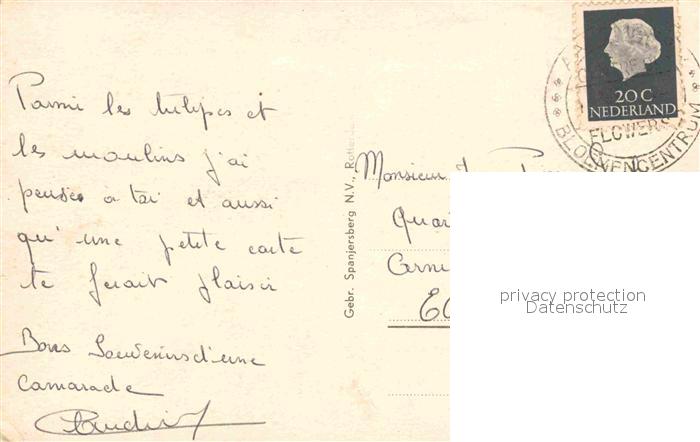 Parmi les tulipes et
les moulins j'ai
pensée à toi et aussi
qu'une petite carte
te ferait plaisir
Bons Souvenirs d'une
camarade
Gebr. Spanjersberg N.V., Rotterd
Monsieur
Quar
20 C
NEDERLAND
FLOWERS
BLOEMENCENTRUM
privacy protection
Datenschutz